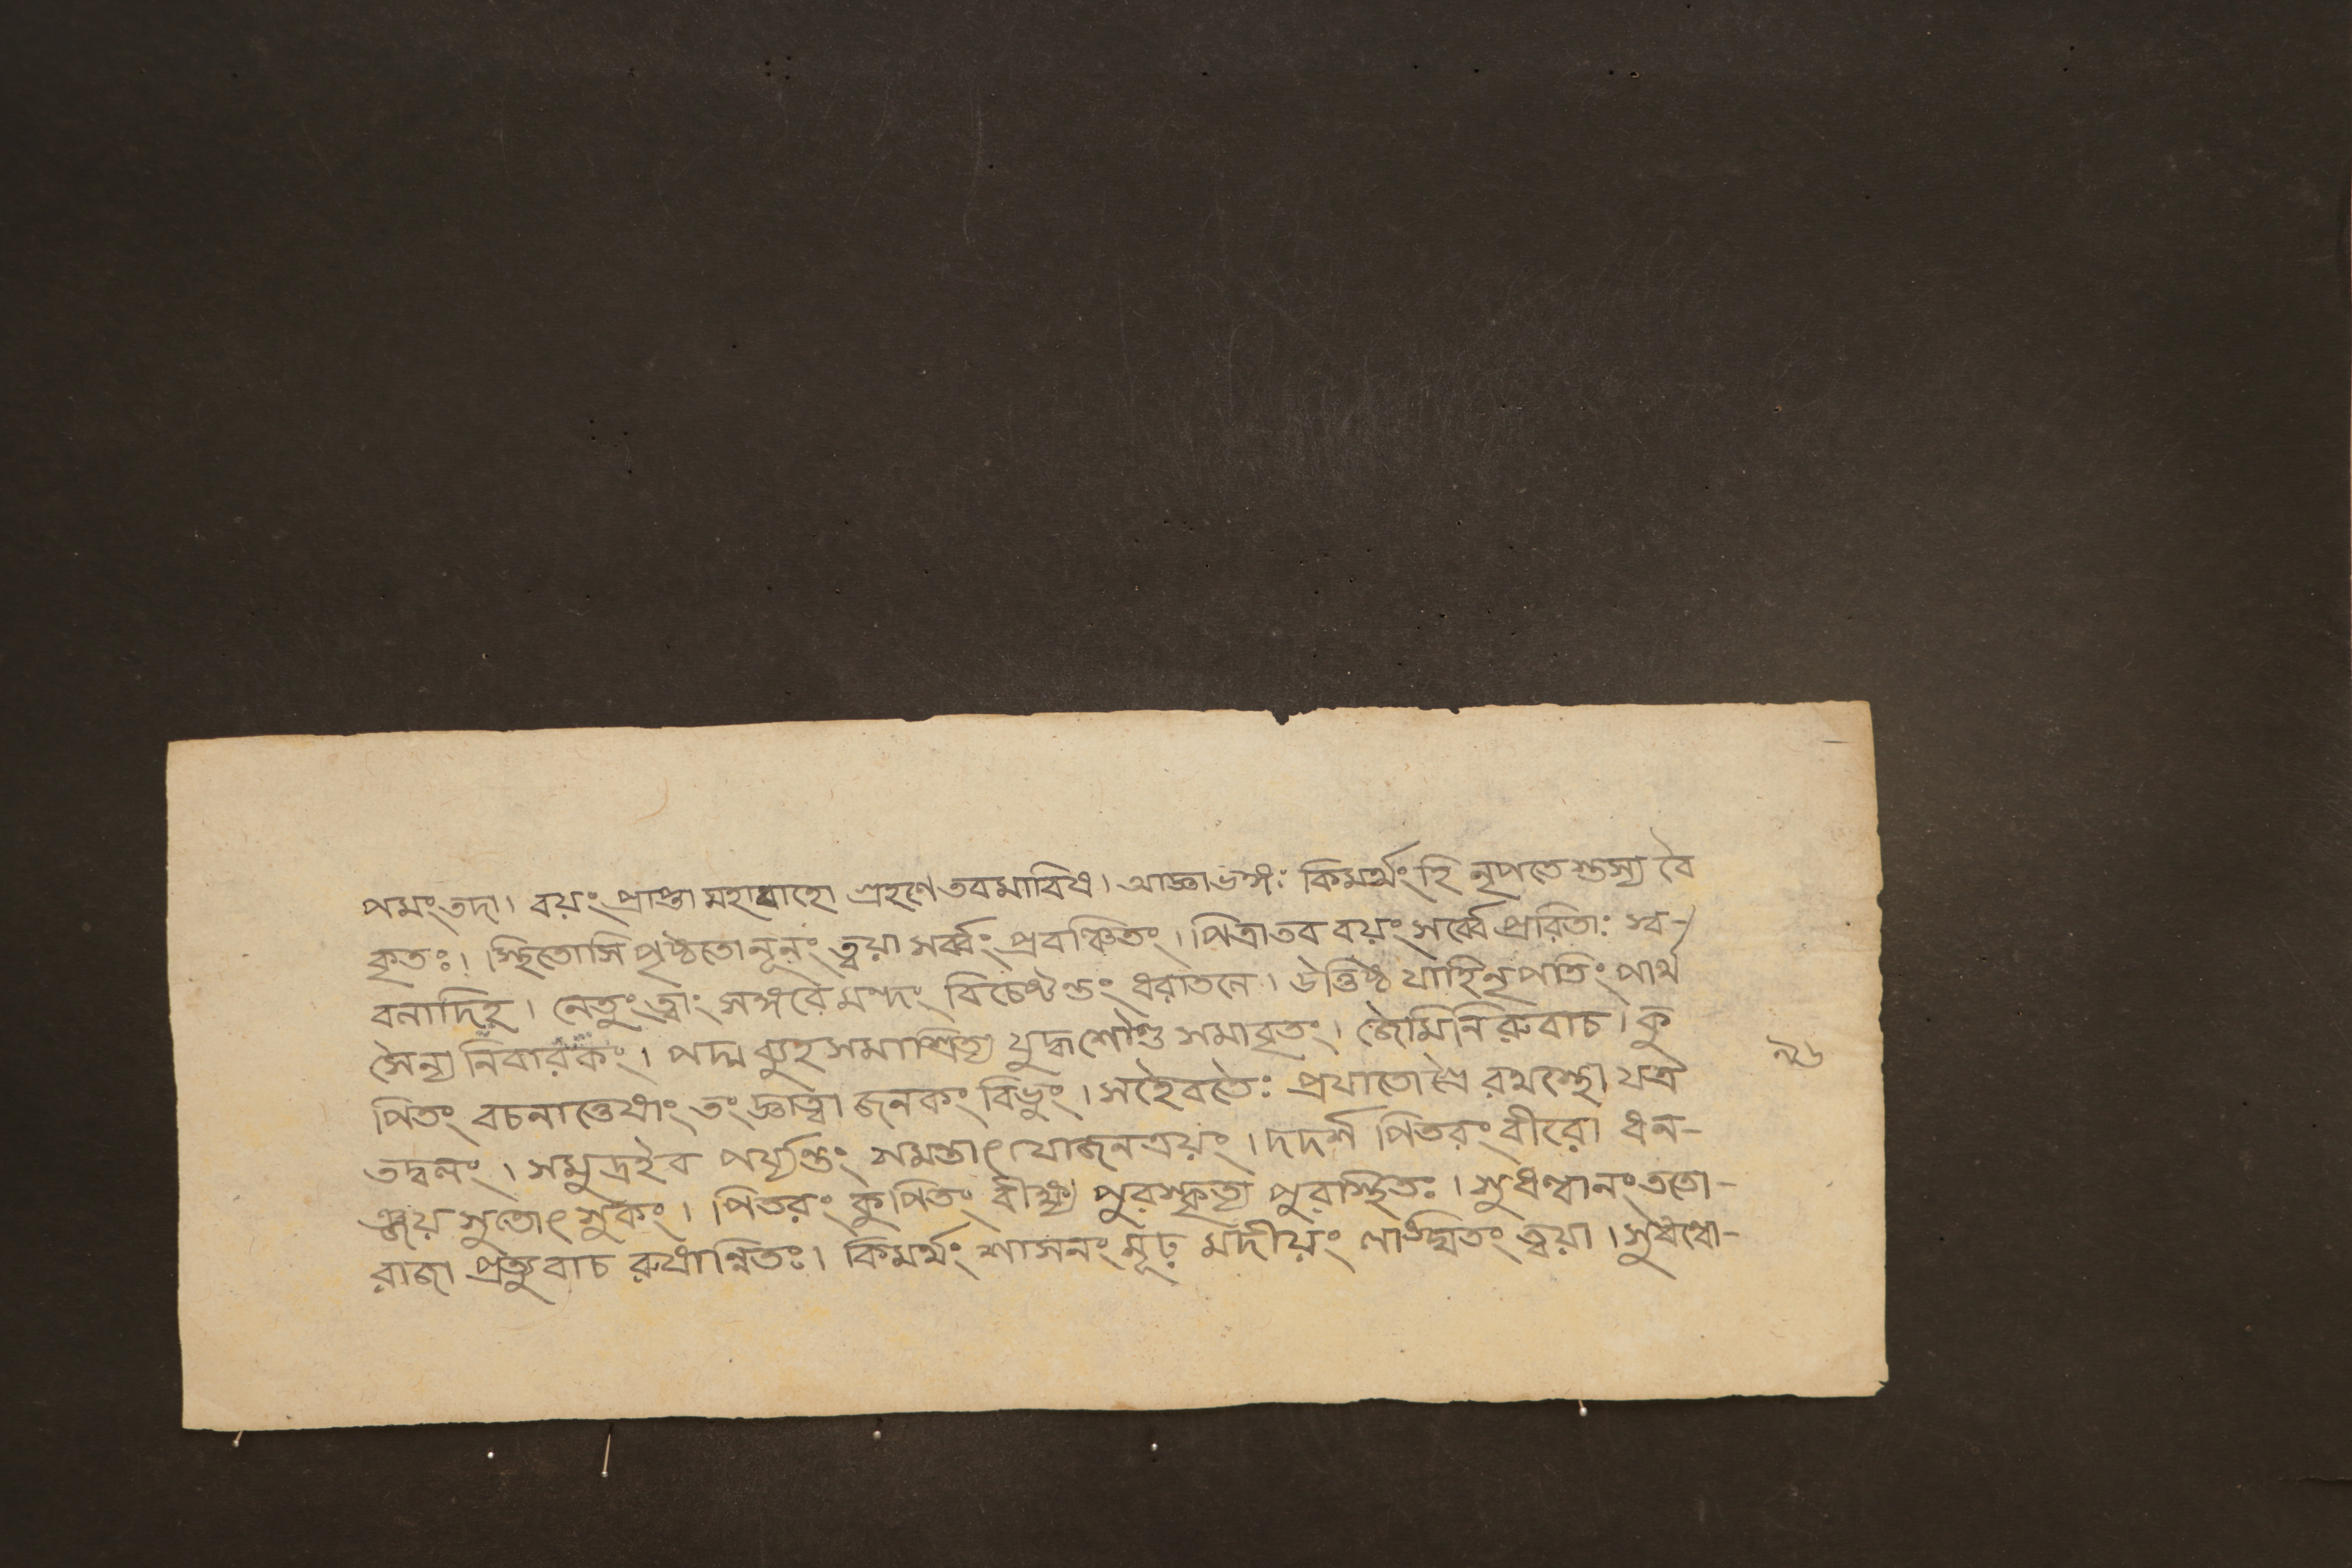 পমং তদা। বয়ং প্রাপ্তা মহাবাহো গ্রহণে তব মাবিধ। আজ্ঞাভঙ্গঃ কিমর্থং হি নৃপতেস্তস্য বৈ
কৃতঃ।। স্থিতোসি পৃষ্ঠতো নূনং ত্বয়া সর্ব্বং প্রবঞ্চিতং। পিত্রা তব বয়ং সর্ব্বে প্রেরিতাঃ স্ব-
বলাদিহ। নেতুং ত্বাং সঙ্গরে মন্দং বিচেষ্টন্তং ধরাতলে। উত্তিষ্ঠ যাহি নৃপতিং পার্থ
সৈন্য নিবারকং। পদ্ম ব্যুহ সমাশ্রিত্য যুদ্ধশৌণ্ড সমাবৃতং। জৈমিনিরুবাচ। কু
পিতং বচনাত্তেষাং তং জ্ঞাত্বা জনকং বিভুং। সহৈব তৈঃ প্রযাতো রথস্থো যত্র
তদ্বলং। সমুদ্রইব পর্য্যন্তং সমন্তাৎ যোজনত্রয়ং। দদর্শ পিতরং বীরো ধন-
ঞ্জয় সুতোৎসুকং। পিতরং কুপিতং বীক্ষ্য পুরস্কৃত্য পুরস্থিতঃ। সুধন্বানং ততো-
রাজা প্রত্যুবাচ রুষান্বিতঃ। কিমর্থং শাসনং মূঢ় মদীয়ং লঙ্ঘিতং ত্বয়া। সুধন্বো-